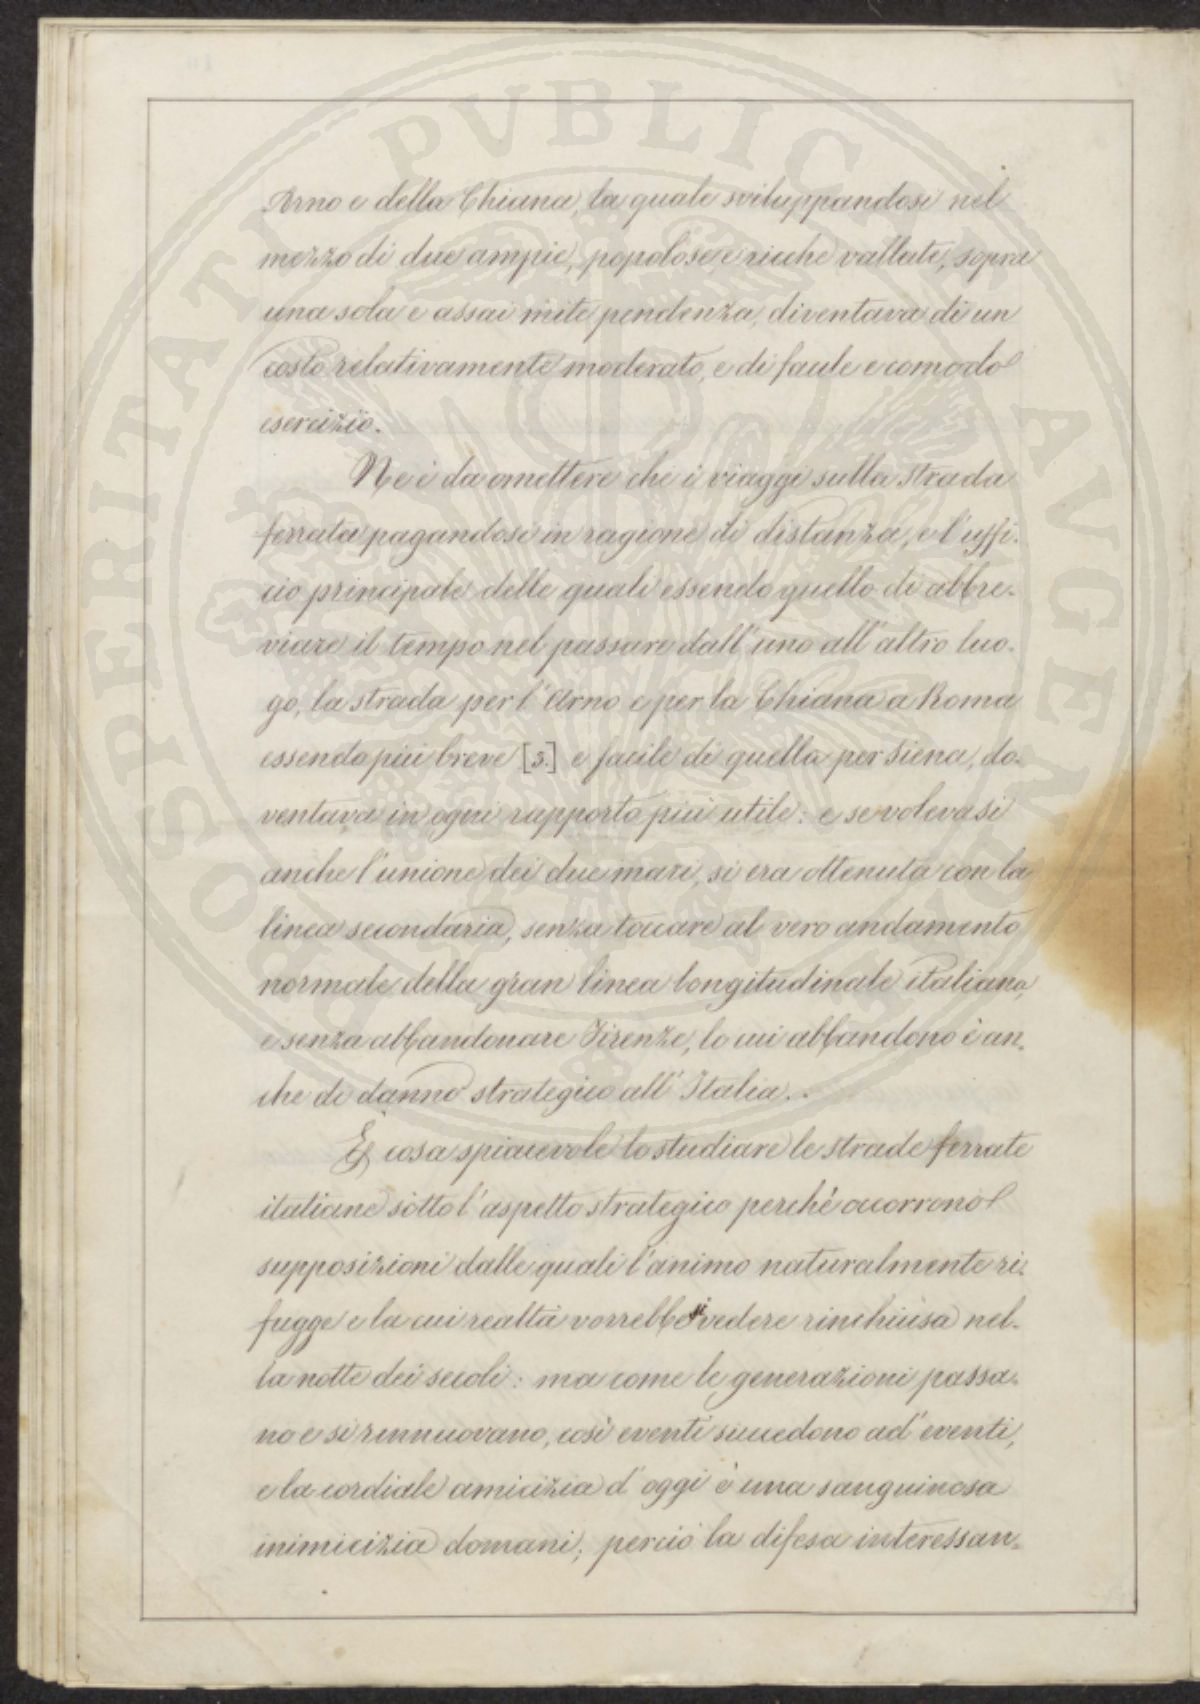 Arno e della Chiana, la quale sviluppandosi nel
mezzo di due ampie, popolose, e ricche vallate, sopra
una sola e assai mite pendenza, diventava di un
costo relativamente moderato, e di facile e comodo
esercizio.
Ne è da omettere che i viaggi sulla strada
ferrata pagandosi in ragione di distanza, e l'uffi-
cio principale delle quali essendo quello di abbre-
viare il tempo nel passare dall'uno all'altro luo-
go, la strada per l'Arno e per la Chiana a Roma
essendo più breve [3.] e facile di quella per Siena, do-
ventava in ogni rapporto più utile: e se volevasi
anche l'unione dei due mari, si era ottenuta con la
linea secondaria, senza toccare al vero andamento
normale della gran linea longitudinale italiana,
e senza abbandonare Firenze, lo cui abbandono è an-
che di danno strategico all'Italia.
È cosa spiacevole lo studiare le strade ferrate
italiane sotto l'aspetto strategico perchè occorrono
supposizioni dalle quali l'animo naturalmente ri-
fugge e la cui realtà vorrebbesi vedere rinchiusa nel-
la notte dei secoli: ma come le generazioni passa-
no e si rinnuovano, così eventi succedono ad eventi,
e la cordiale amicizia d'oggi è una sanguinosa
inimicizia domani; perciò la difesa interessan-
PROSPERITATI PVBLICAE AVGENDAE